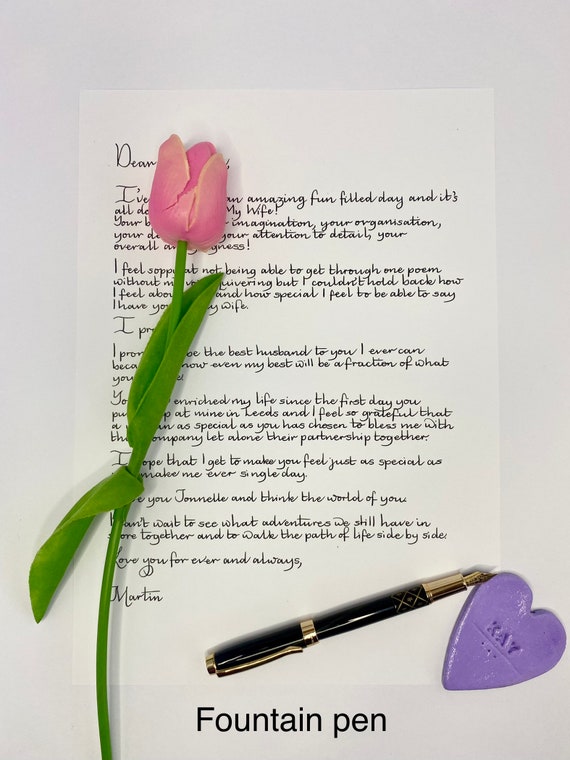 Dear
I've an amazing fun filled day and it's
all do My Wife!
Your imagination, your organisation,
your your attention to detail, your
overall
I feel soppy at not being able to get through one poem
without quivering but I couldn't hold back how
I feel and how special I feel to be able to say
I have wife.
I
I be the best husband to you I ever can
know even my best will be a fraction of what
you
enriched my life since the first day you
at mine in Leeds and I feel so grateful that
a as special as you has chosen to bless me with
company let alone their partnership together.
I hope that I get to make you feel just as special as
make me ever single day.
you Jonnelle and think the world of you.
can't wait to see what adventures we still have in
store together and to walk the path of life side by side.
Love you for ever and always,
Martin
KAY
Fountain pen